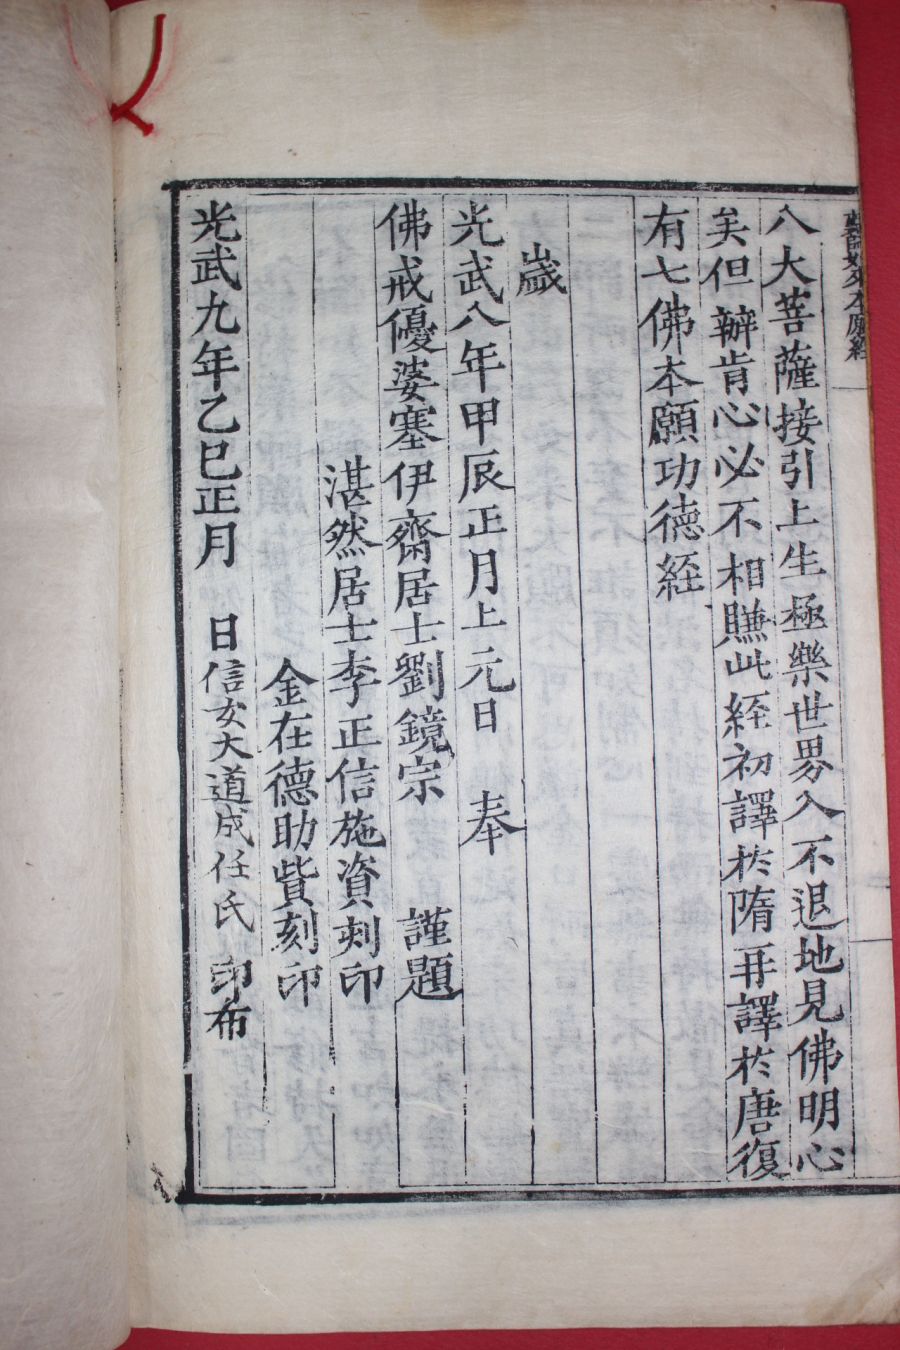 藥師如來本願經
八大菩薩接引上生極樂世界入不退地見佛明心
矣但辦肯心必不相賺此經初譯於隋再譯於唐復
有七佛本願功德經
歲
光武八年甲辰正月上元日 奉
佛戒優婆塞伊齋居士劉鏡宗 謹題
湛然居士李正信施資刻印
金在德助貲刻印
光武九年乙巳正月 日信女大道成任氏 印布